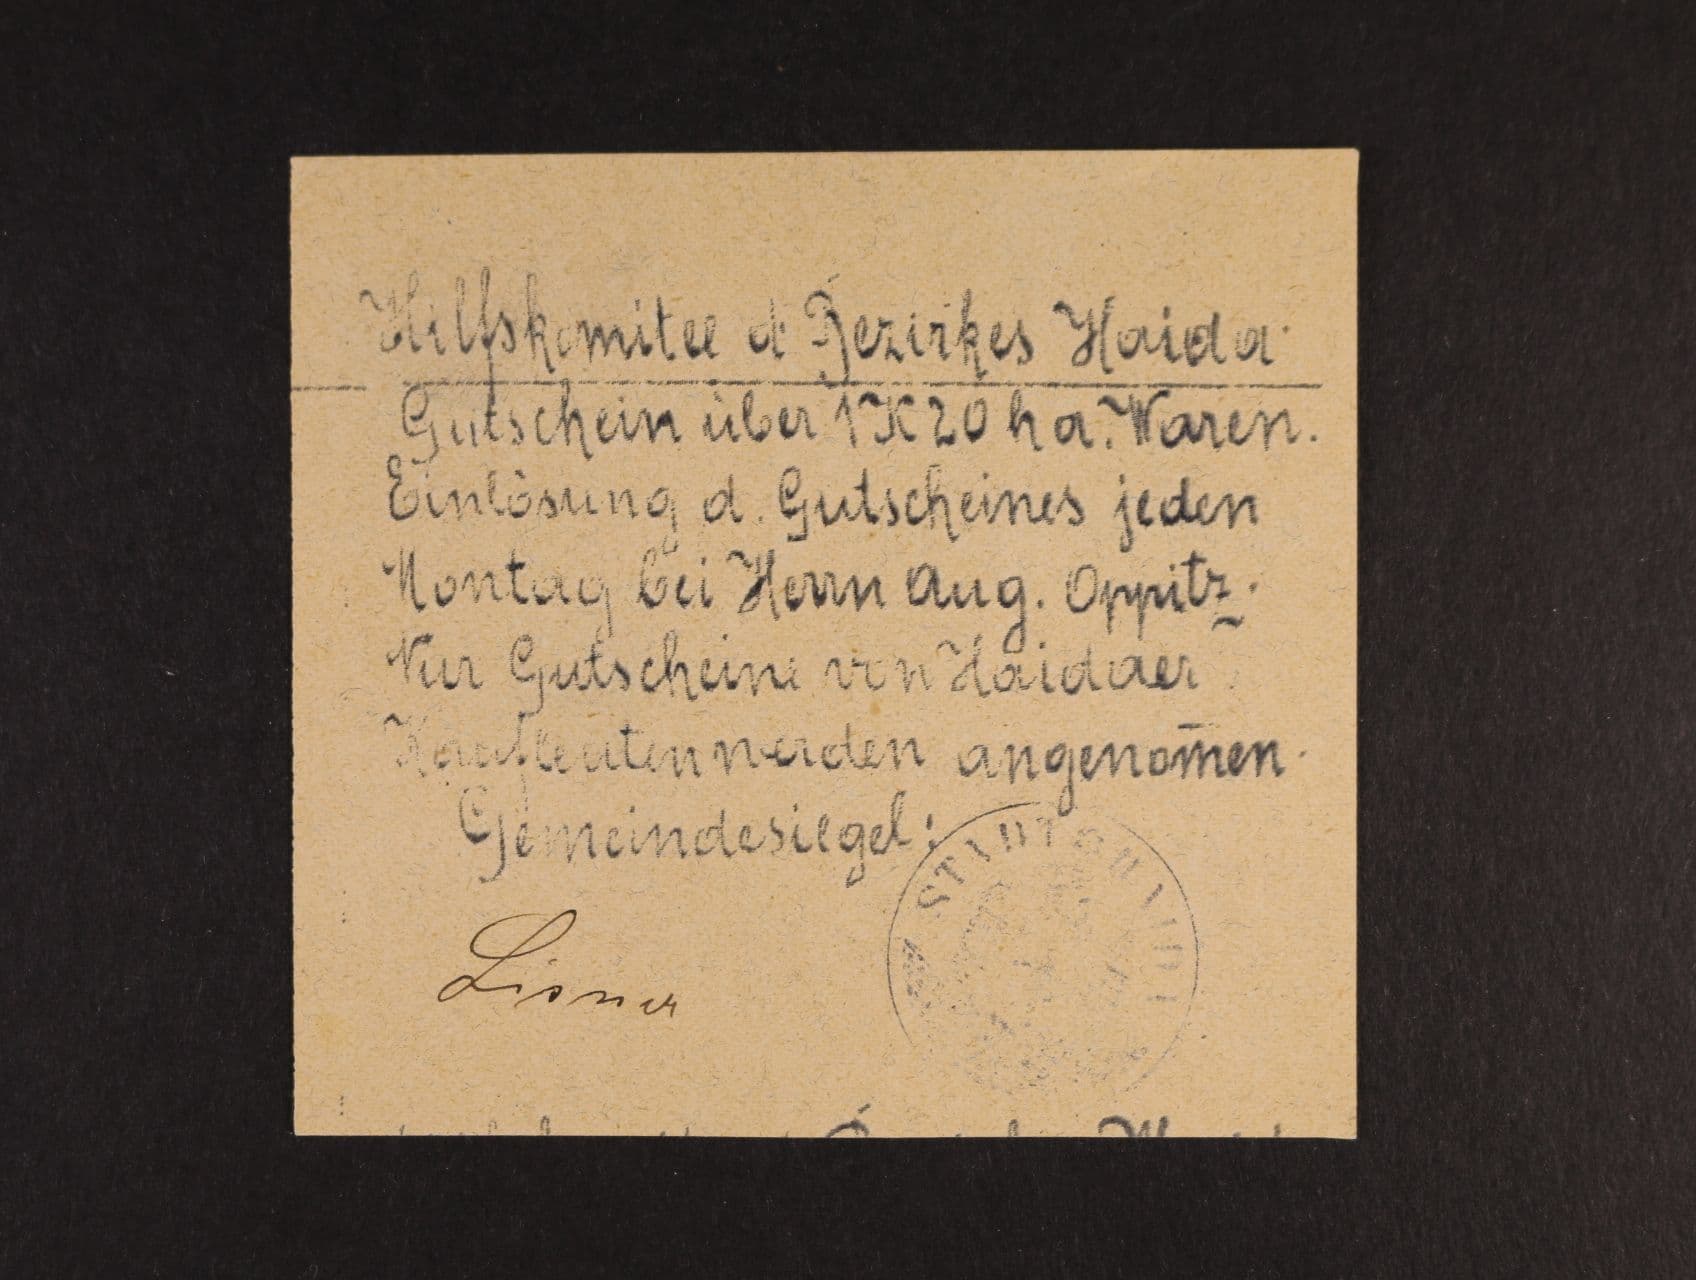 Hilfskomitee d. Bezirkes Haida.
Gutschein über 1 K 20 h a. Waren.
Einlösung d. Gutscheines jeden
Montag bei Herrn Aug. Oppitz.
Nur Gutscheine von Haidaer
Kaufleuten werden angenom̅en.
Gemeindesiegel:
STADT HAIDA
Lisner